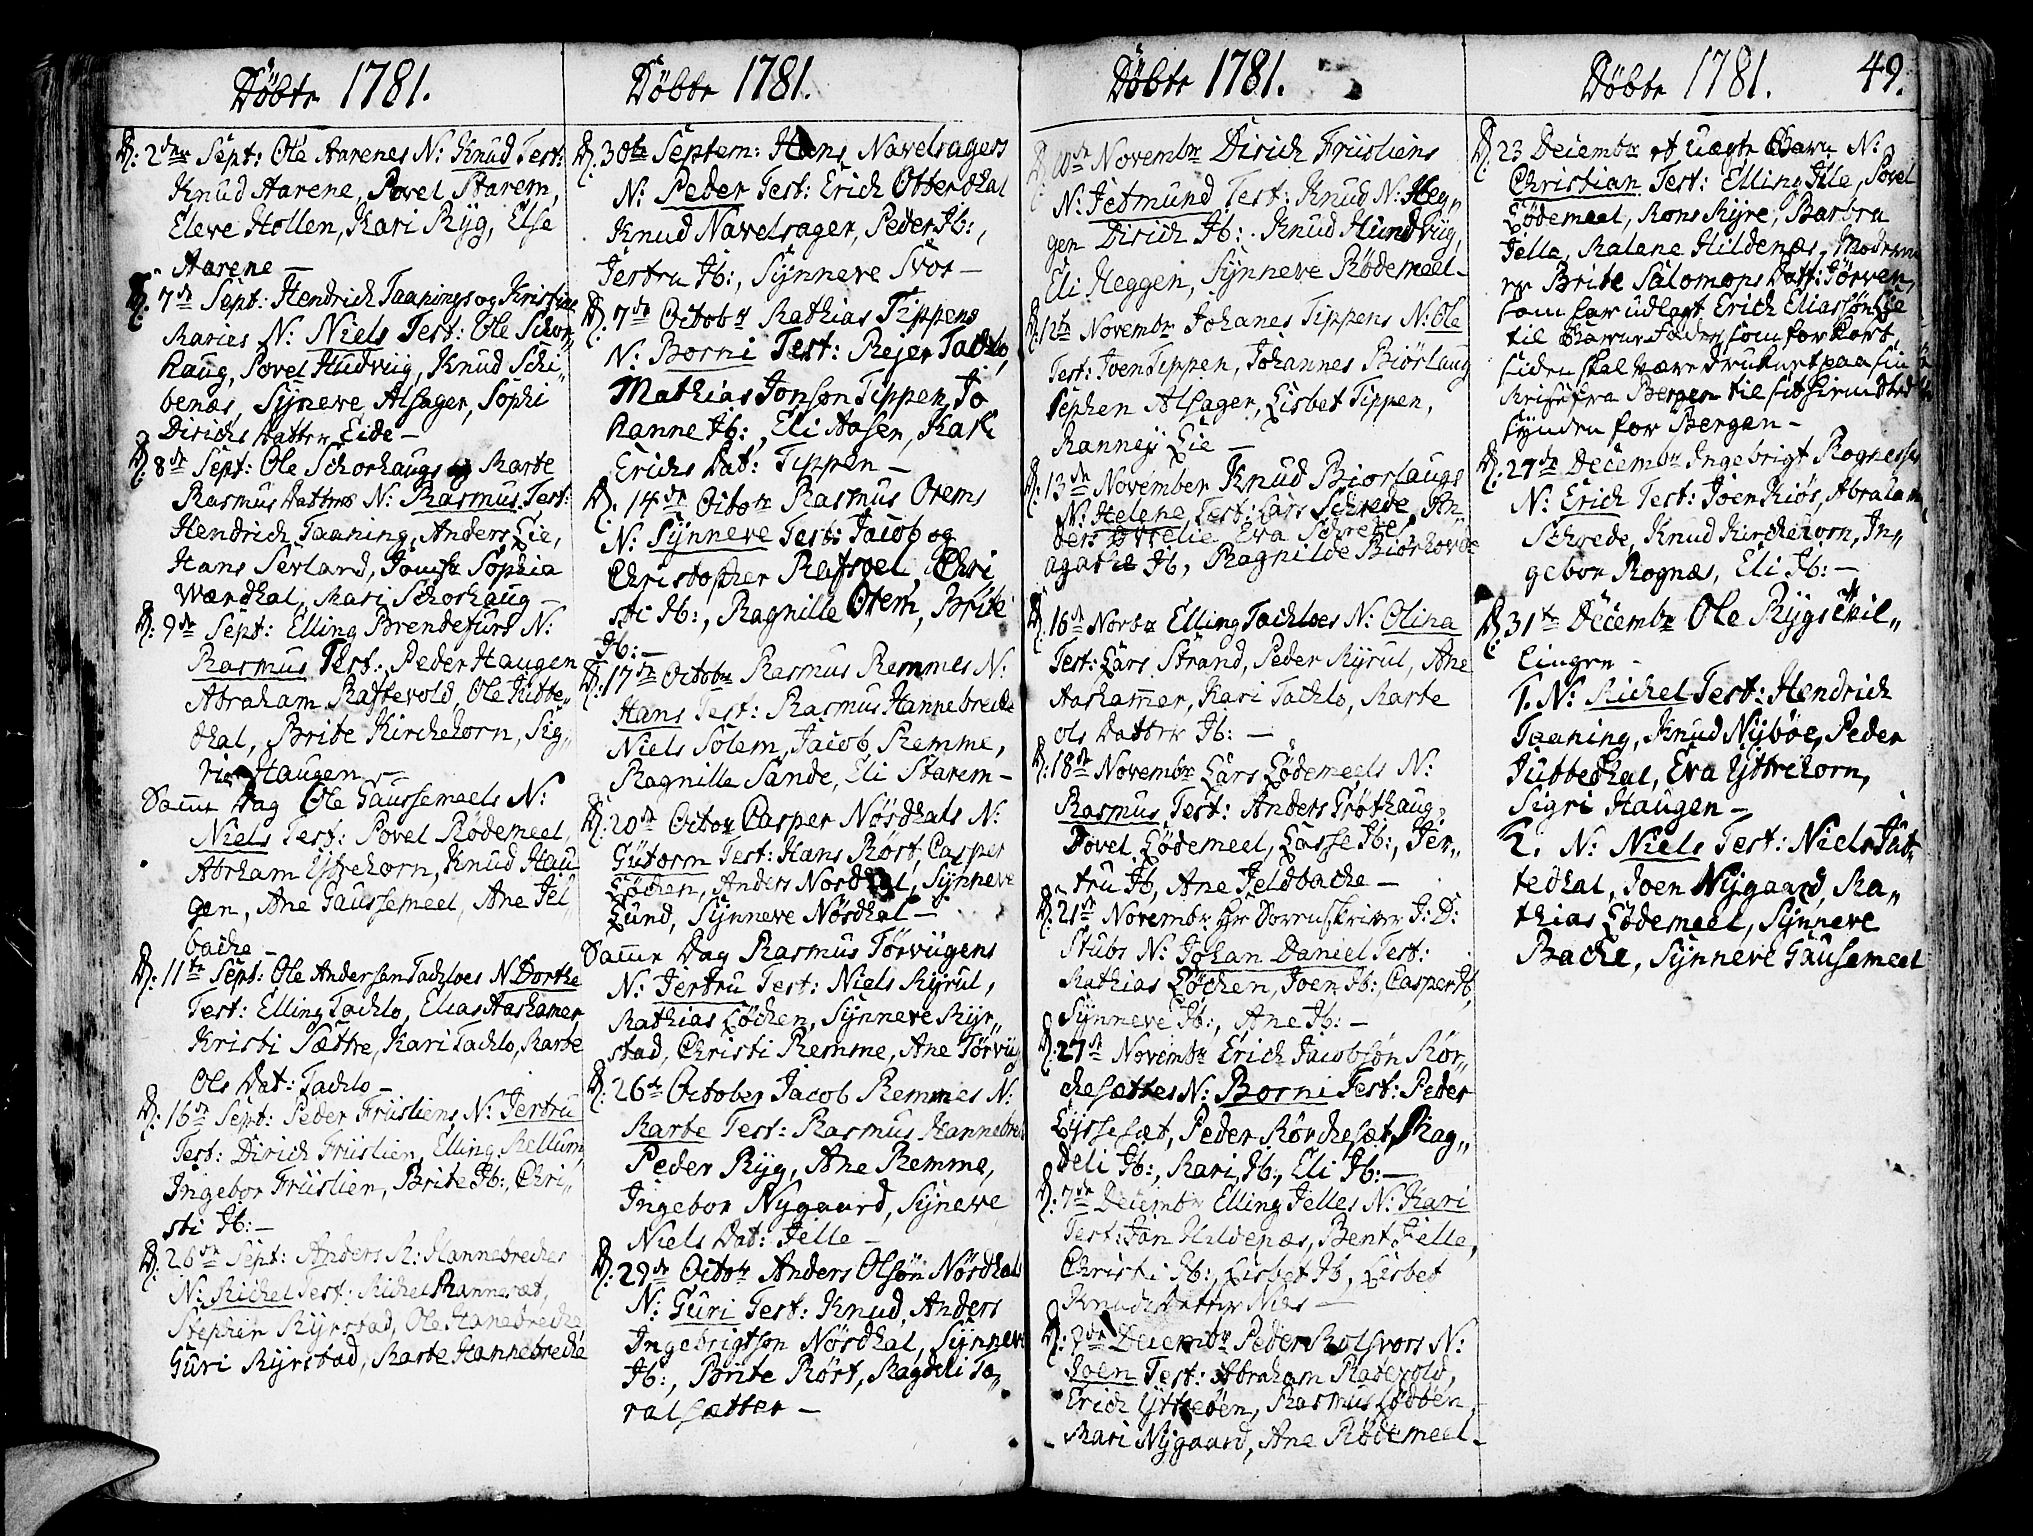 Döbte 1781.
D: 2den Sept: Ole Aarenes N: Knud Test:
Knud Aarene, Povel Starem,
Eleve Hollen, Kari Ryg, Else
Aarene —
D: 7de Sept: Hendrich Taanings og Kristine
Maries N: Niels Test: Ole Schor-
haug, Povel Hudvüg, Knud Schi-
benæs, Synneve Alsager, Sophi
Dirichs Datter Eide —
D: 8de Sept: Ole Schorhaugs og Marte
Rasmus Datters N: Rasmus Test:
Hendrich Taaning, Anders Lie,
Hans Sevland, Sophia
Wærdhal, Mari Schorhaug —
D: 9de Sept: Elling Brendefürs N:
Rasmus Test: Peder Haugen
Abraham Raftevold, Ole Jütte-
dhal, Brite Kirchehorn, Sig-
ri Haugen —
Samme Dag Ole Gaussemeels N:
Niels Test: Povel Rödemeel,
Abrham Yttrehorn, Knud Hau-
gen, Ane Gaussemeel, Ane Jel-
bache —
D: 11te Sept: Ole Andersen Tachloes N Dorthe
Test: Elling Tachlo, Elias Aaskamer
Kristi Sættre, Kari Tachlo, Marte
Ols Dat: Tachlo —
D: 16de Sept: Peder Friisliens N: Jertru
Test: Dirich Friislien, Elling Mellum,
Ingebor Friislien, Brite Jb:, Chri-
sti Jb: —
D: 26de Sept: Anders M: Hannebreches
N: Michel Test: Michel Mannesæt,
Stephen Myrstad, Ole Hanebreche
Guri Myrstad, Marte Hannebreche
Döbte 1781.
D: 30te Septem: Hans Navelsagers
N: Peder Test: Erich Otterdhal
Knud Navelsager, Peder Jb:,
Jertru Jb:, Synneve Svor —
D: 7de Octobr Mathias Tippens
N: Borni Test: Rejer Tachlo,
Mathias Jonson Tippen, Jo
hanne Jb:, Eli Aasen, Kari
Erichs Dat: Tippen —
D: 14de Octobr Rasmus Orems
N: Synneve Test: Jacob og
Christopher Rafsvel, Chri
sti Jb:, Ragnille Orem, Brite
Jb: —
D: 17de Octobr Rasmus Remmes N:
Hans Test: Rasmus Hannebreche
Niels Solem, Jacob Remme,
Ragnille Sande, Eli Starem —
D: 20de Octobr Casper Nösdhals N:
Gütorm Test: Hans Rört, Casper
Löchen, Anders Nordhal, Synneve
Lund, Synneve Nösdhal —
Samme Dag Rasmus Törvügens
N: Jertru Test: Niels Myrul,
Mathias Löchen, Synneve Myr-
stad, Christi Remme, Ane Törvüg
D: 26de October Jacob Remmes N:
Marte Test: Rasmus Hannebrech
Peder Ryg, Ane Remme,
Ingebor Nygaard, Synneve
Niels Dat: Jelle —
D: 29de Octobr Anders Olsön Nösdhals
N: Guri Test: Knud, Anders
Ingebrigtson Nösdhal, Synneve
Jb:, Brite Rört, Ragdeli To-
ralsætter —
Döbte 1781.
D: 10de Novembr Dirich Friisliens
N: Jetmund Test: Knud N: Heg-
gen Dirich Jb:. Knud Hundvüg,
Eli Heggen, Synneve Rödemeel —
D: 12te Novembr Johanes Tippens N: Ole
Test: Joen Tippen, Johannes Biörlaug
Sephen Alsager, Lisbet Tippen,
Ranney Lie —
D: 13de November Knud Biorlaugs
N: Helene Test: Lars Schrede, An-
ders Eva Schrede,
agathe Jb, Ragnilde Biörhovde
D: 16de Novbr Elling Tachloes N: Olina
Test: Lars Strand, Peder Myrul, Ane
Aaskamer, Kari Tachlo, Marte
Ols Datter Jb: —
D: 18de Novembr Lars Lödemeels N:
Rasmus Test: Anders Tröthaug,
Povel Lödemeel, Lasse Jb:, Jer-
tru Jb, Ane Jeldbache —
D: 21de Novembr Hr Sorenskriver J: D:
Stubs N: Johan Daniel Test:
Mathias Löchen, Joen Jb:, Casper Jb,
Synneve Jb:, Ane Jb: —
D: 27de Novembr Erich Jacobson Rör-
chesættes N: Borni Test: Peder
Lyssesæt, Peder Rörchesæt, Rag-
deli Jb:, Mari Jb:, Eli Jb: —
D: 7de Decembr Elling Jelles N: Kari
Test: Jan Hildenæs, Bent Jelle,
Christi Jb:, Lisbet Jb, Lisbet
Knuds Datter Nies —
D: 9de Decembr Peder Rolsvors N:
Joen Test: Abraham Ratevold,
Erich Yttreöen, Rasmus Lödöen,
Mari Nygaard, Ane Rödemeel —
Döbte 1781. 49.
D: 23 Decembr et uægte Barn N:
Christian Test: Elling Jlle, Povel
Lödemeel, Mons Myre, Barbru
Jelle, Malene Hildenæs, Moderen
er Brite Salomons Datt: Törven,
som har udlagt Erich Eliassön Lie
til Barne Fader, som for kort
siden skal være druknet paa sin
Reise fra Bergen til sit hiemsted
synden for Bergen —
D: 27de Decembr Ingebrigt Rognesses
N: Erich Test: Joen Riös, Abraham
Schrede, Knud Kirchehorn, In-
gebor Rognæs, Eli Jb: —
D: 31te Decembr Ole Rygs tvil-
linger —
1. N: Michel Test: Hendrich
Taaning, Knud Nyböe, Peder
Jüttedhal, Eva Yttrehorn,
Sigri Haugen —
2. N: Niels Test: Niels Jüt-
tedhal, Joen Nygaard, Ma-
thias Lödemeel, Synneve
Bache, Synneve Gausemeel